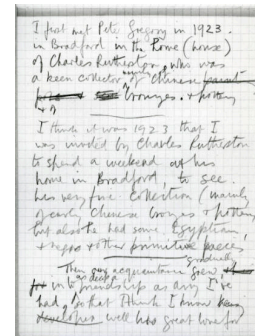 I first met Peter Gregory in 1923.
in Bradford in the home (house)
of Charles Rutherston, who was
a keen collector mainly of Chinese
bronzes. + pottery
I think it was 1923 that I
was invited by Charles Rutherston
to spend a weekend at his
home in Bradford, to see
his very fine collection (mainly
of early Chinese bronzes + pottery
but also he had some Egyptian,
+ negro + other primitive pieces
gradually
Then our acquaintance grew
as deep a
into friendship as any I've
had, so that I think I know
well his great love for